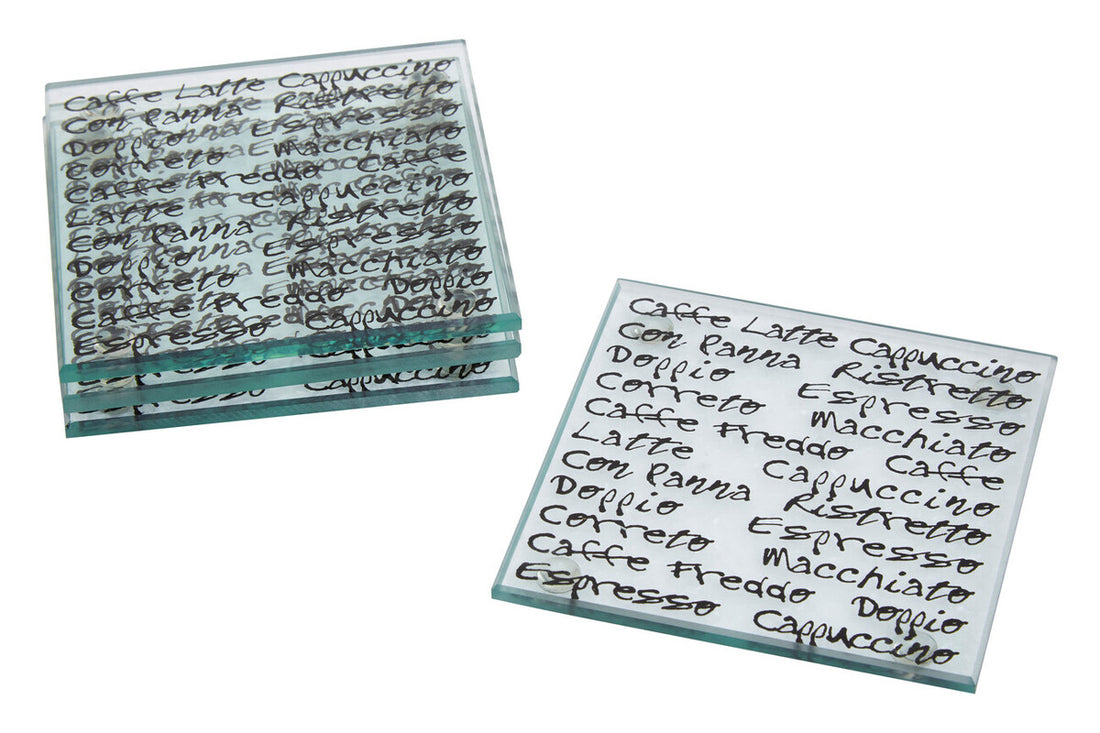 Caffe Latte Cappuccino
Con Panna Ristretto
Doppio Espresso
Correto Macchiato
Caffe Freddo Caffe
Latte Cappuccino
Con Panna Ristretto
Doppio Espresso
Correto Macchiato
Caffe Freddo Doppio
Espresso Cappuccino
Caffe Latte Cappuccino
Con Panna Ristretto
Doppio Espresso
Correto Macchiato
Caffe Freddo Caffe
Latte Cappuccino
Con Panna Ristretto
Doppio Espresso
Correto Macchiato
Caffe Freddo Doppio
Espresso Cappuccino